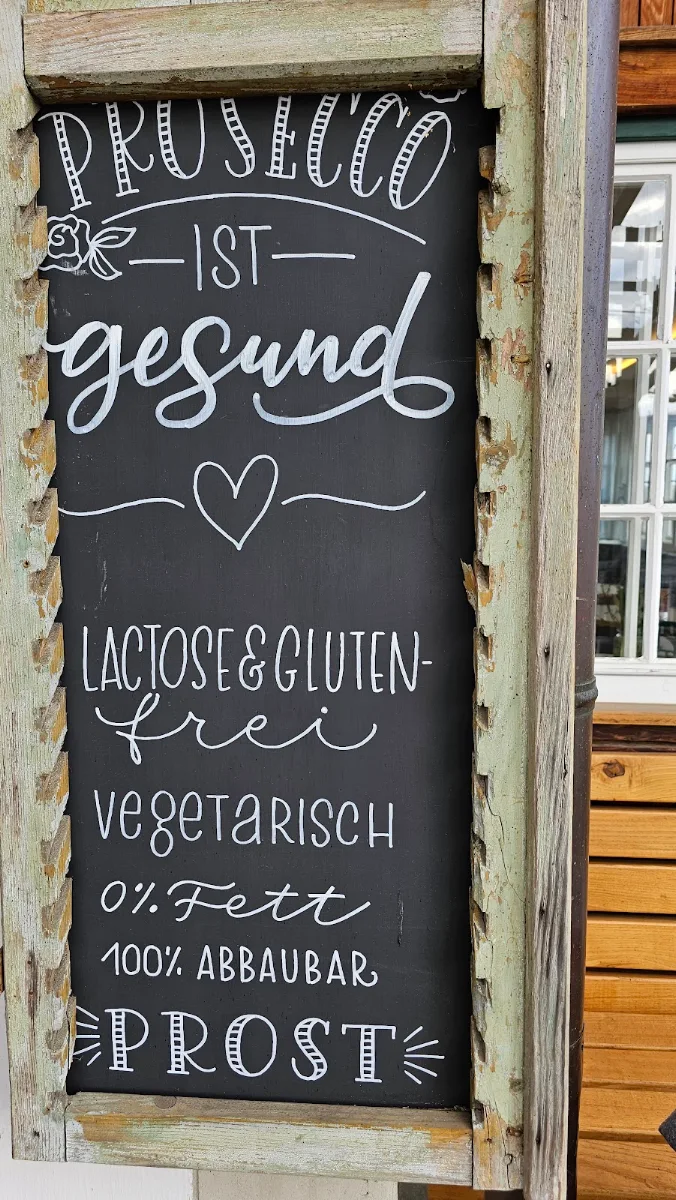 PROSECCO
IST
gesund
LACTOSE & GLUTEN-
frei
vegetarisch
0% Fett
100% ABBAUBAR
PROST